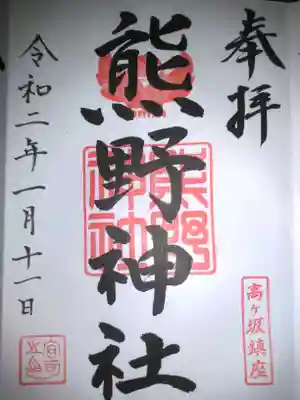 奉拝
高ヶ坂鎮座
熊野神社
熊野
神社
令和二年一月十一日